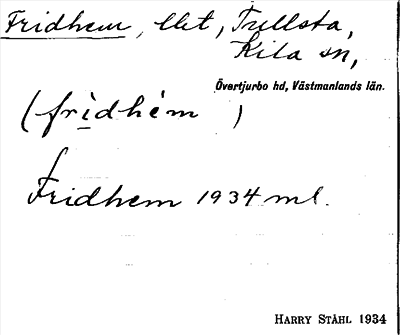 Fridhem, llet, Trellsta,
Kila sn,
Övertjurbo hd, Västmanlands län.
(frìdhém )
Fridhem 1934 ml.
HARRY STÅHL 1934